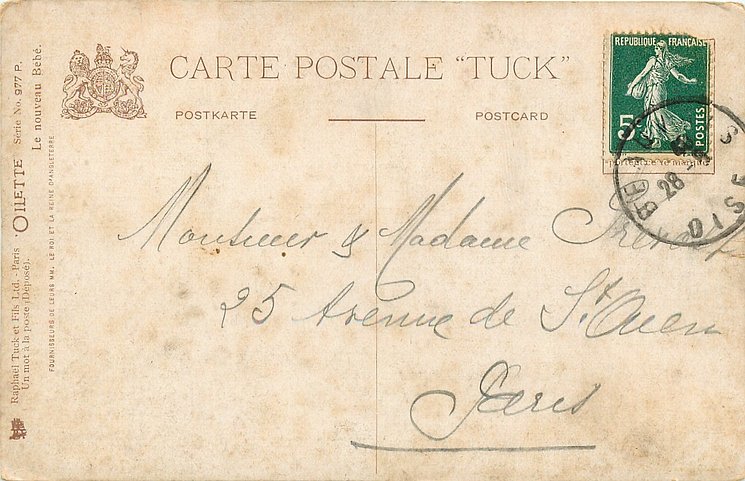 CARTE POSTALE "TUCK"
POSTKARTE
POSTCARD
REPUBLIQUE FRANÇAISE
5c
POSTES
28
OISE
Monsieur & Madame
25 Avenue de St Ouen
Paris
Raphael Tuck et Fils Ltd. - Paris OILETTE Série No. 977 P.
Un mot à la poste (Déposé). Le nouveau Bébé.
FOURNISSEURS DE LEURS MM. LE ROI ET LA REINE D'ANGLETERRE